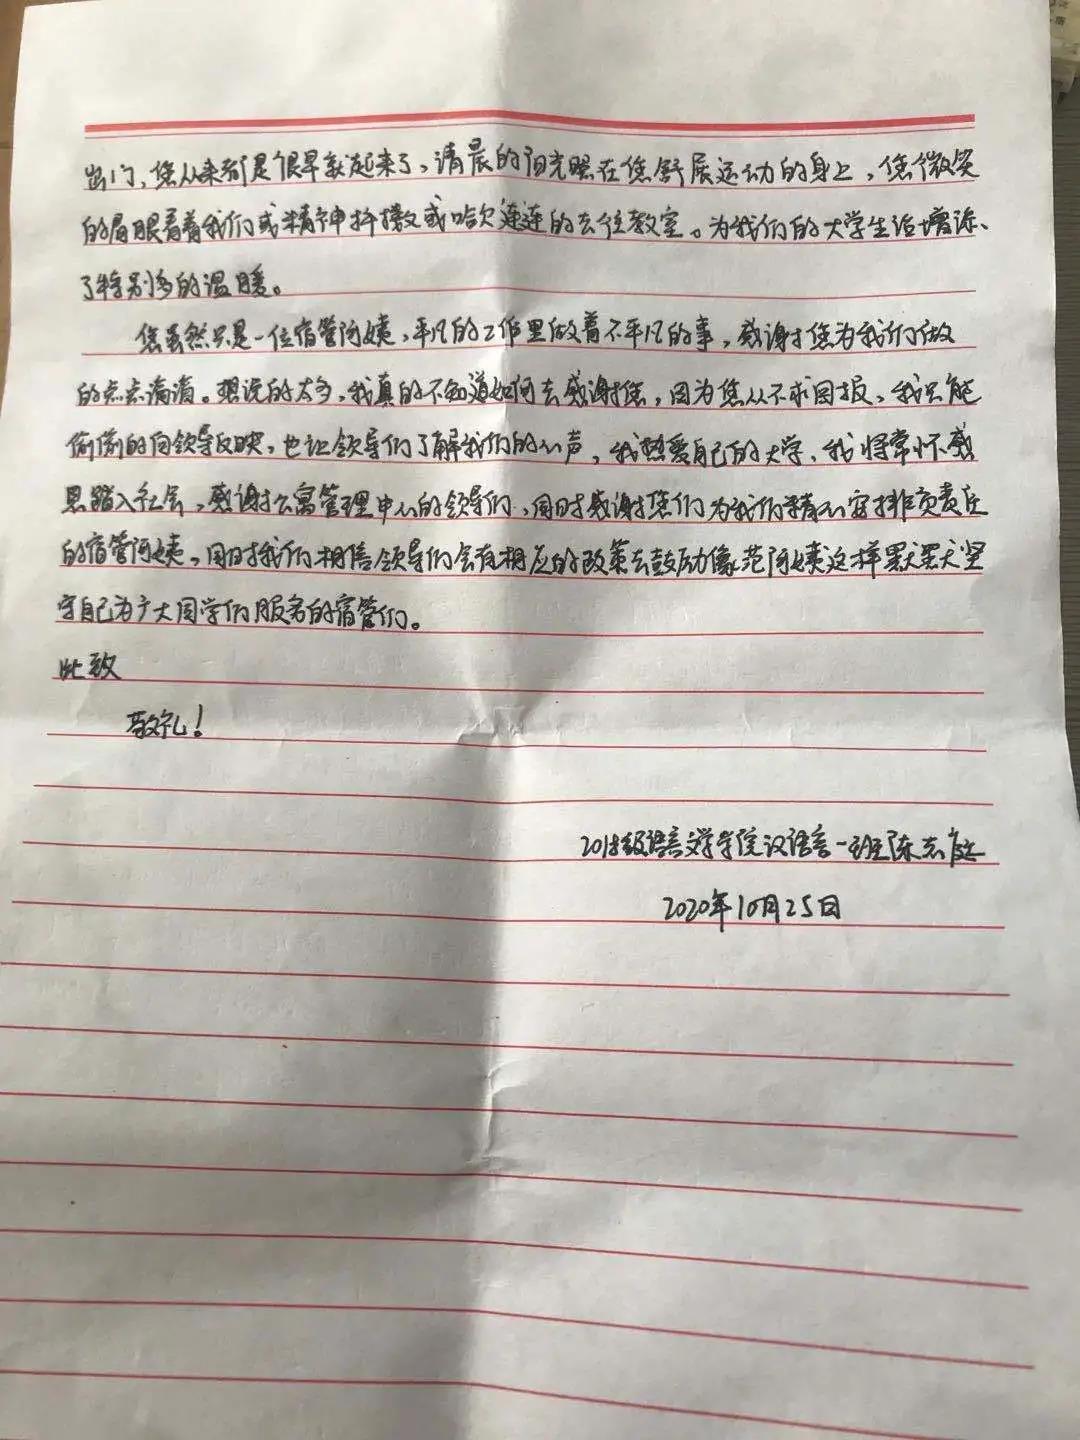 出门，您从来都是很早就起来了，清晨的阳光照在您舒展运动的身上，您微笑
的眉眼看着我们或精神抖擞或哈欠连连的去往教室。为我们的大学生活增添
了特别多的温暖。
您虽然只是一位宿管阿姨，平凡的工作里做着不平凡的事，感谢您为我们做
的点点滴滴。想说的太多，我真的不知道如何去感谢您，因为您从不求回报，我只能
偷偷的向领导反映，也让领导们了解我们的心声，我热爱自己的大学，我将常怀感
恩踏入社会，感谢公寓管理中心的领导们，同时感谢您们为我们精心安排负责任
的宿管阿姨，同时我们相信领导们会有相应的政策去鼓励像范阿姨这样默默坚
守自己为广大同学们服务的宿管们。
此致
敬礼！
2018级语言文学学院汉语言一班陈志
2020年10月25日